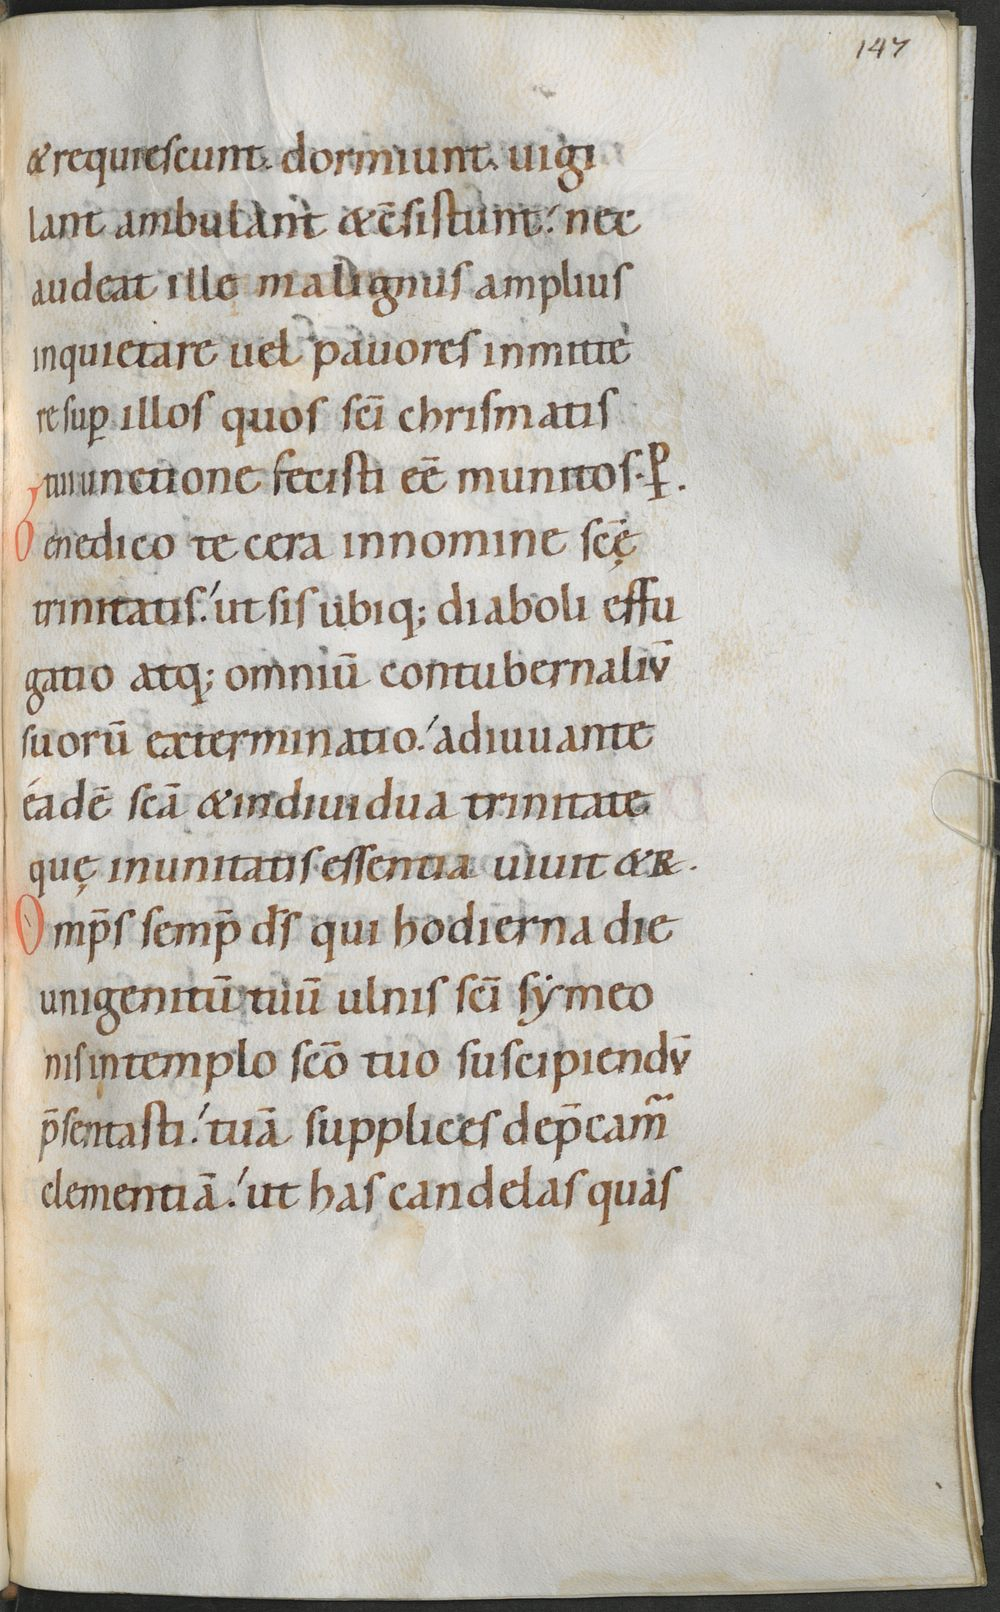 147
& requiescunt. dormiunt. uigi
lant ambulant & c̄sistunt! nec
audeat ille malignus amplius
inquietare uel pauores inmitte
re sup̱ illos quos sc̄i chrismatis
tui unctione fecisti eē munitos. P̱.
Benedico te cera innomine sc̄ę
trinitatis! ut sis ubiq; diaboli effu
gatio atq; omniū contubernaliv̄
suorū exterminatio! adiuuante
eadē scā & indiuidua trinitate
quę inunitatis essentia uiuit & R.
Omp̄s semp̄ d̄s qui hodierna die
unigenitū tuū ulnis sc̄i sẏmeo
nis intemplo sc̄o tuo suscipiendv̄
p̄sentasti! tuā supplices dep̄cam̃
clementiā! ut has candelas quas